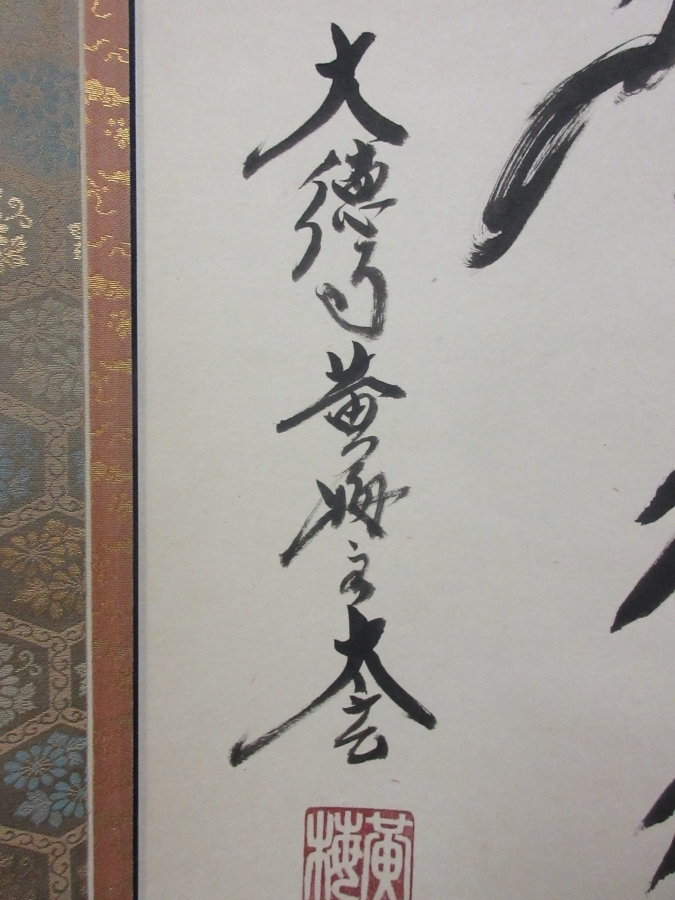 大徳寺黄梅主太玄
黄梅